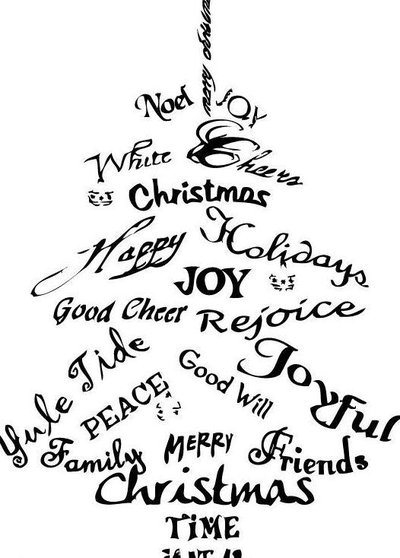 merry christmas
Noel JOY
White Cheers
Christmas
Happy Holidays
JOY
Good Cheer Rejoice
Yule Tide Good Will Joyful
PEACE
Family MERRY Friends
Christmas
TIME